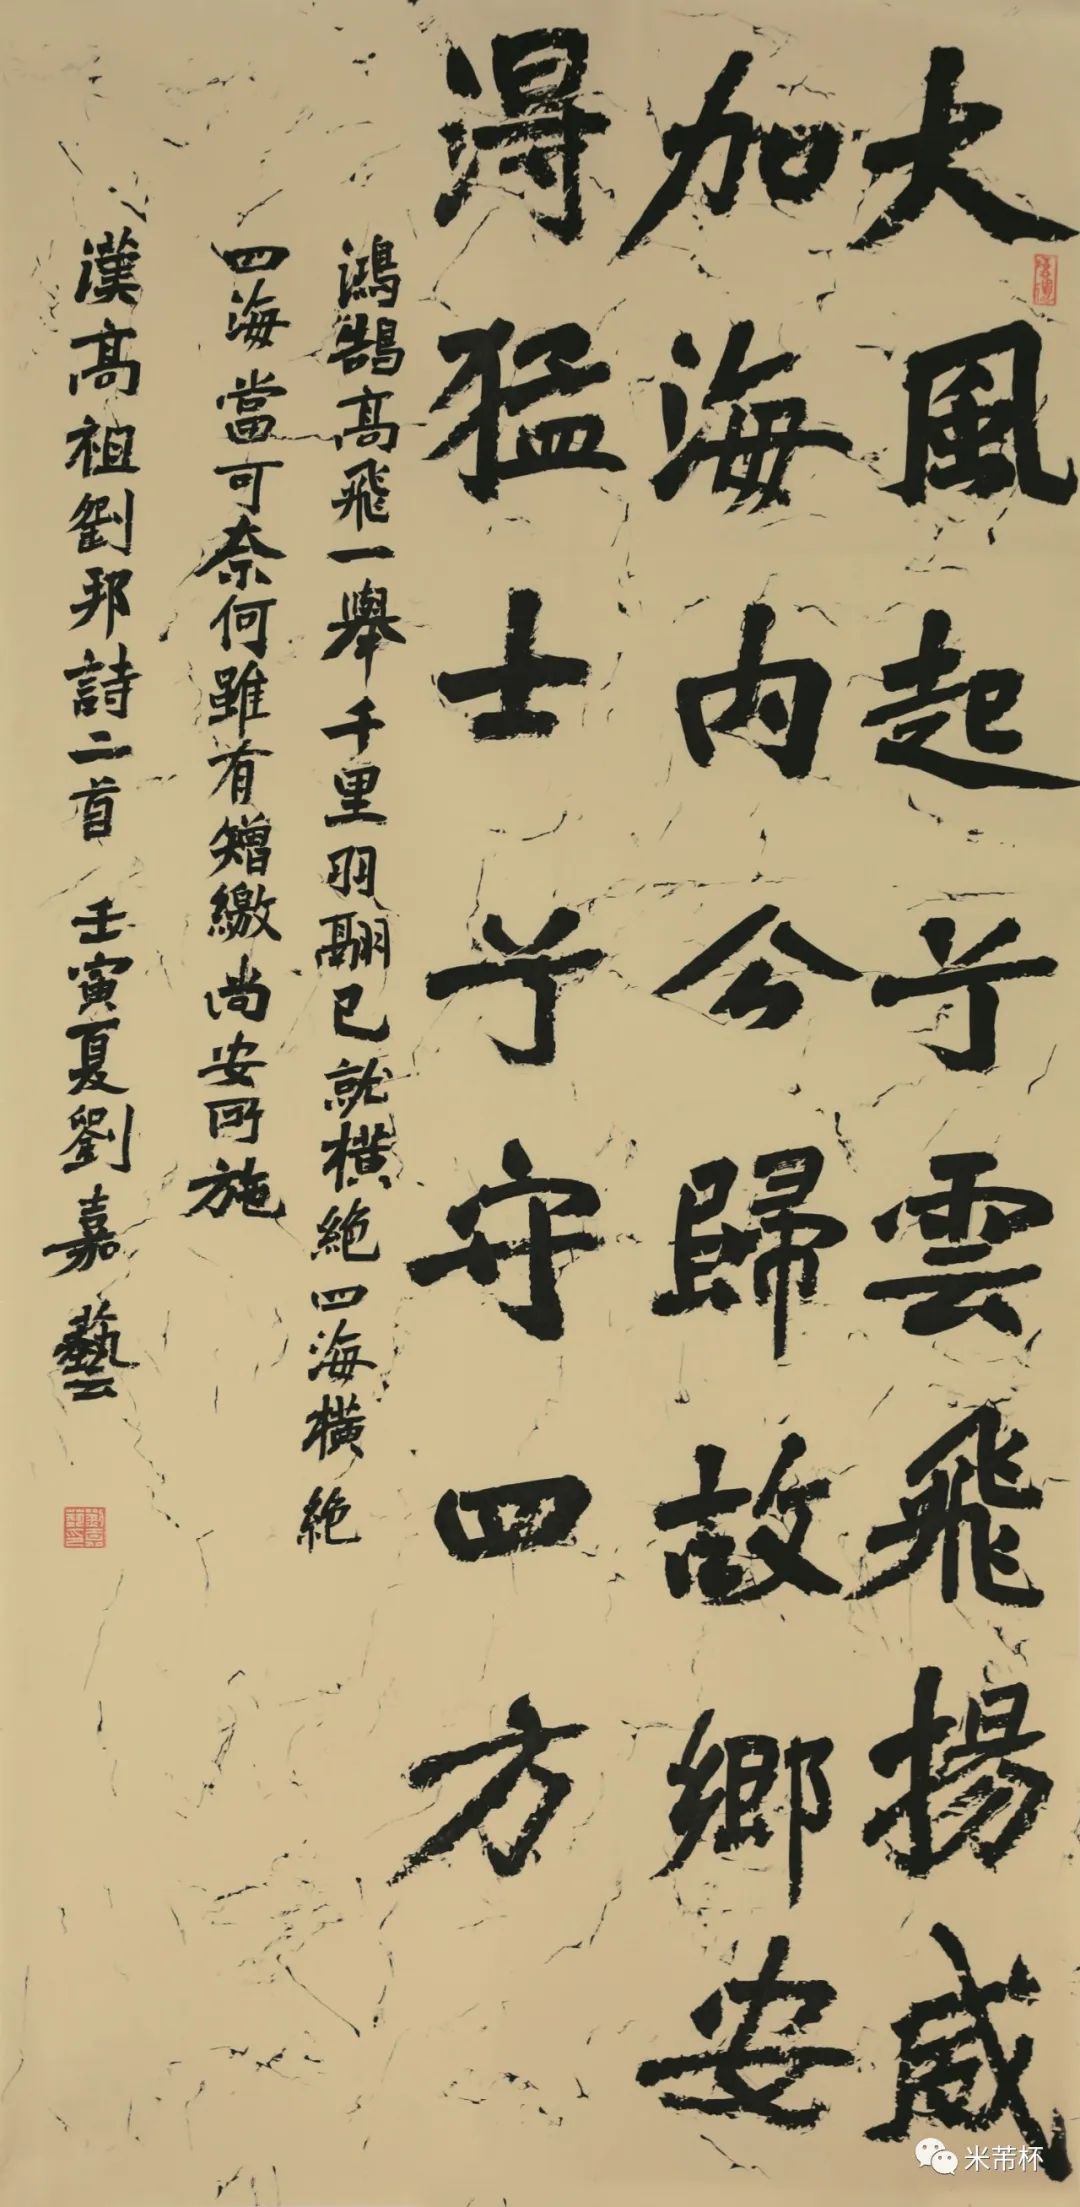 大風起兮雲飛揚威
加海内兮歸故鄉安
得猛士兮守四方
鴻鵠高飛一舉千里羽翮已就橫絶四海橫絶
四海當可奈何雖有矰繳尚安所施
漢高祖劉邦詩二首 壬寅夏劉嘉藝
米芾杯